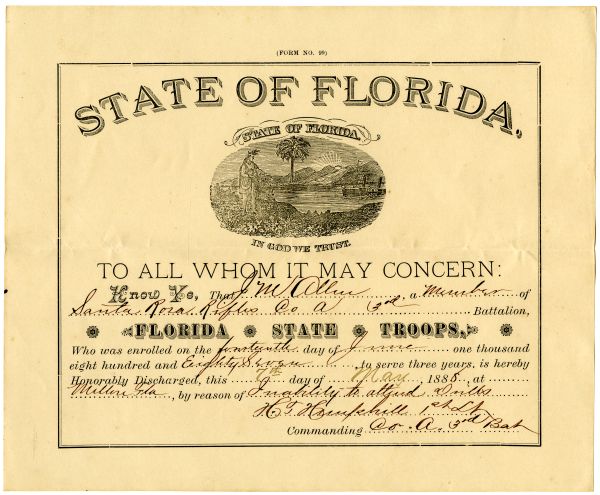 (FORM NO. 99)
STATE OF FLORIDA,
STATE OF FLORIDA.
IN GOD WE TRUST.
TO ALL WHOM IT MAY CONCERN:
Know Ye, That J M Allen a Member of
Santa Rosa Rifles Co A 3rd Battalion,
FLORIDA STATE TROOPS,
Who was enrolled on the fourteenth day of June one thousand
eight hundred and Eighty Seven to serve three years, is hereby
Honorably Discharged, this 7th day of May 1888, at
Milton Fla, by reason of Inability to attend Drills
1st Lt
Commanding Co. A. 3rd Bat